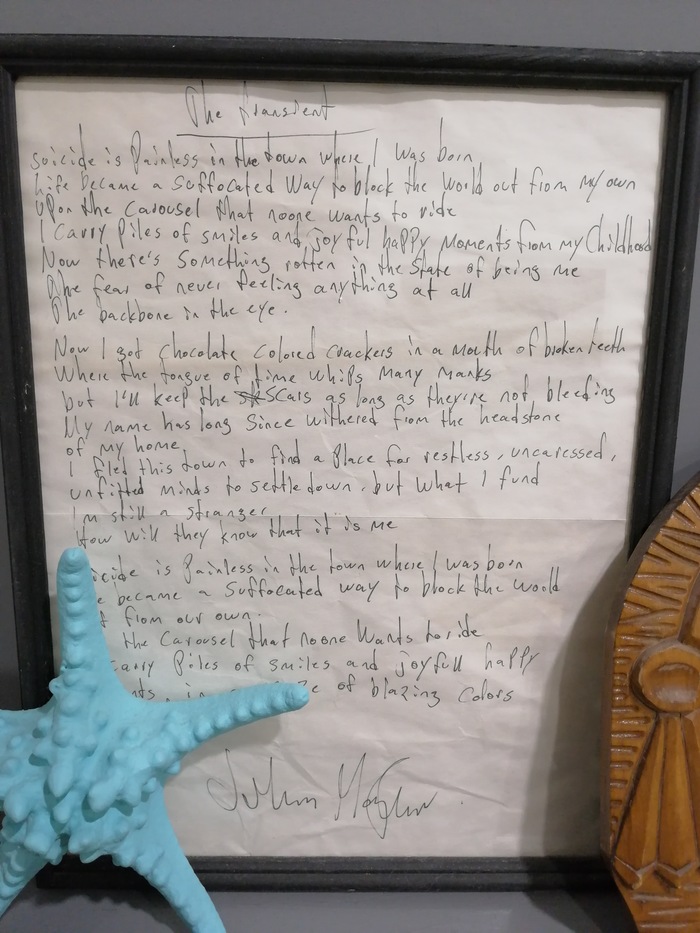 The transient
Suicide is Painless in the town where I was born
Life became a Suffocated Way to block the World out from my own
Upon the Carousel that noone wants to ride
I Carry Piles of smiles and joyful happy Moments from my Childhood
Now there's Something rotten in the State of being me
The fear of never feeling anything at all
The backbone in the eye.
Now I got Chocolate Colored Crackers in a Mouth of broken teeth
Where the tongue of time whips Many Marks
but I'll keep the Scars as long as they're not bleeding
My name has long Since withered from the headstone
of my home
I fled this town to find a Place for restless, uncaressed,
unfitted minds to Settle down, but What I fund
I'm still a stranger
How will they know that it is me
icide is Painless in the town where I was born
e became a Suffocated way to block the World
t from our own.
the Carousel that noone Wants to ride
carry Piles of smiles and joyfull happy
nts, in of blazing Colors